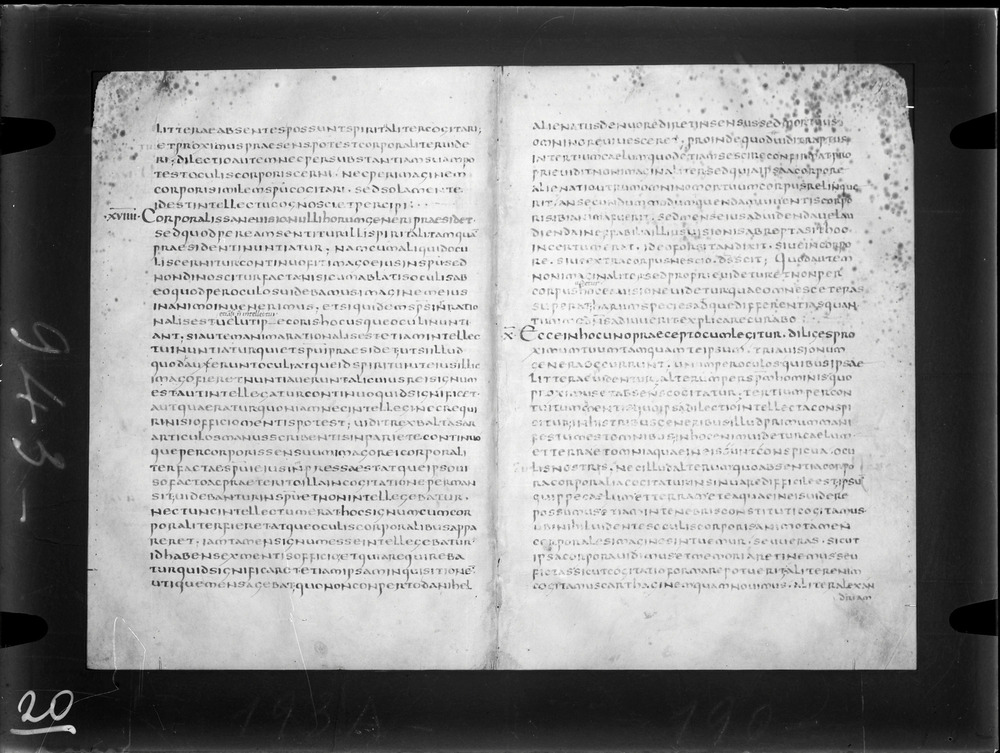 litteraeabsentespossuntspiritalitercogitari;
etproximuspraesenspotestcorporaliteruide
ri; dilectioautemnecpersubstantiamsuampo
testoculiscorporiscerni. necperimaginem
corporissimilemspucogitari. sedsolamente.
idestintellectucognoscietpercipi;
xviiii. Corporalissaneuisionullihorumgeneripraesidet.
sedquodpereamsentiturillispiritalitamqua
praesidentinuntiatur. namcumaliquidocu
liscernitur continuofitimagoeiusinspused
nondinosciturfactanisicumablatisoculisab
eoquodperoculosuidebamusimaginemeius
inanimoinuenerimus. etsiquidemspsinratio
nalisestuelut p ecorishocusqueoculinunti
ant; siautemanimarationalisestetiamintellec
tuinuntiaturquietspuipraesidet utsiillud
quodauferuntoculiatqueidspirituiuteiusillic
imagofieretnuntiaueruntalicuiusreisignum
estautintellegaturcontinuoquidsignificet.
autquaeratur quoniamnecintelleginecrequi
rinisiofficiomentispotest; uiditrexbaltasar
articulosmanusscribentisinparietecontinuo
quepercorporissensumimagoreicorporali
terfactaespuieiusinpressaestatqueipsoui
sofactoacpraeteritoillaincogitationeperman
sit uidebaturinspuetnonintellegebatur.
nectuncintellectumerathocsignumcumcor
poraliterfieretatqueoculiscorporalibusappa
reret. iamtamensignumesseintellegebatur
idhabensexmentisofficio etquiarequireba
turquidsignificaretetiamipsaminquisitione
utiquemensagebat quononconpertodanihel
alienatusdenuorediretinsensussedmortuus
omninoreuiuesceret. proindequoduiditraptus
intertiumcaelumquodetiamsescireconfirmatpro
prieuiditnonimaginalitersedquiaipsaacorpore
alienatioutrumomninomortuumcorpusreliquc
rit. ansecundummodumquendamuiuentiscorpo
risibianimafuerit. sedmenseiusaduidendauelau
diendaineffabiliailliusuisionisabreptasithoo
incertumerat. ideoforsitandixit. siueincorpo
re. siueextracorpusnescio. dsscit; Quodautem
nonimaginalitersedproprieuideturetnonper
corpushoceauisioneuideturquaeomnesceteras
superat harumspeciesadquedifferentiasquan
tum dsadiuueritexplicarecurabo;
x. Ecceinhocunopraeceptocumlegitur. diligespro
ximumtuumtamquamteipsum. triauisionum
generaoccurrunt. unumperoculosquibusipsae
litteraeuidentur. alterumperspmhominisquo
proximusetabsenscogitatur. tertiumpercon
tuitummentisquoipsadilectiointellectaconspi
citur; inhistribusgeneribusilludprimummani
festumestomnibus inhocenimuideturcaelum
etterraetomniaquaeineissuntconspicuaocu
lisnostris. necilludalterumquoabsentiacorpo
racorporaliacogitanturinsinuaredifficileest ipsu
quippecaelumetterrametea quaeineisuidere
possumusetiamintenebrisconstituticogitamus.
ubinihiluidentesoculiscorporisanimotamen
corporalesimaginesintuemur. seuueras. sicut
ipsacorporauidimusetmemoriaretinemusseu
fictassicutcogitatioformarepotuerit aliterenim
cogitamuscarthaginemquamnouimus. aliteralexan
driam
20